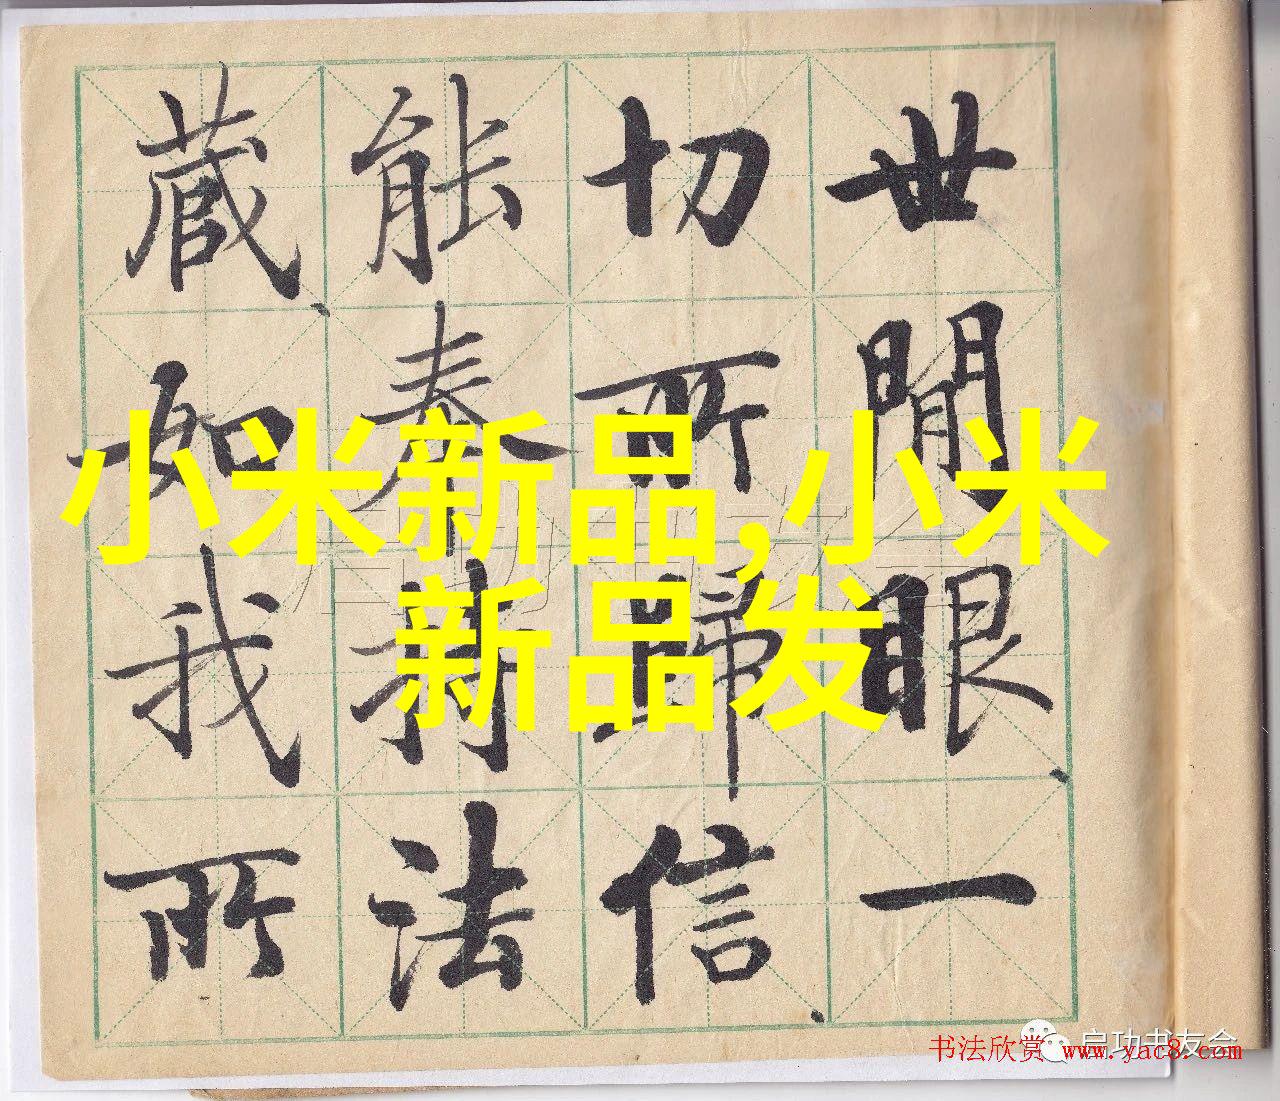 世間眼一
切所歸信
能奉持法
藏如我所
小米新品,小米
新品发
启功书友会
书法欣赏 www.yac8.com
启功书友会